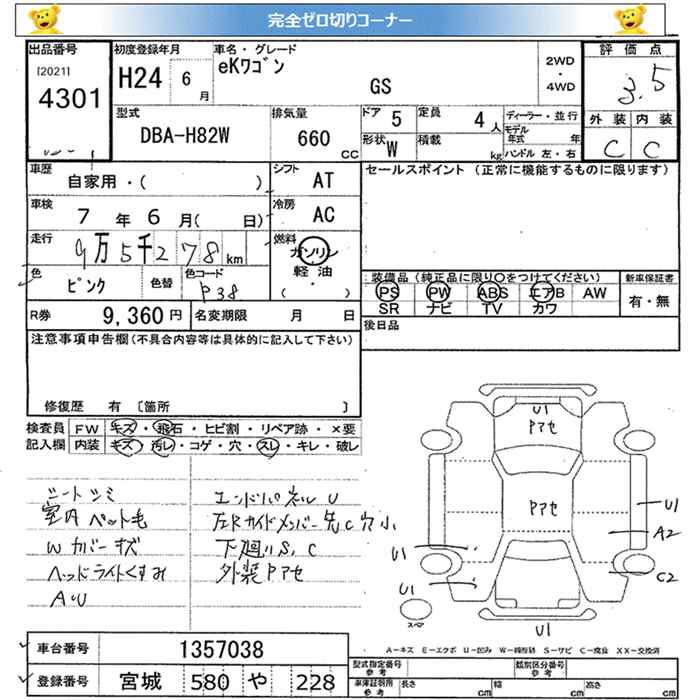 完全ゼロ切りコーナー
出品番号 初度登録年月 車名・グレード 評価点
[2021] 4301 H24 6月 eKワゴン GS 2WD・4WD 3.5
型式 排気量 ドア 5 定員 4人 ディーラー・並行 外装 内装
DBA-H82W 660cc 形状 W 積載 kg モデル年式 年 C C
ハンドル 左・右
車歴 自家用・( ) シフト AT セールスポイント(正常に機能するものに限ります)
車検 7年6月( 日) 冷房 AC
走行 9万5千278km 燃料 ガソリン
軽油・( )
色 ピンク 色替 色コード P38
装備品(純正品に限り○をつけてください) 新車保証書
PS PW ABS エアB AW 有・無
SR ナビ TV カワ
R券 9,360円 名変期限 月 日 後日品
注意事項申告欄(不具合内容等は具体的に記入して下さい)
修復歴 有 〔箇所 〕
検査員 FW キズ・飛石・ヒビ割・リペア跡・×要
記入欄 内装 キズ・汚レ・コゲ・穴・スレ・キレ・破レ
シートシミ
室内ペット毛
Wカバーキズ
ヘッドライトくすみ
A・U
エンドパネルU
左Rサイドメンバー先C穴小
下廻りS、C
外装Pアセ
U1
Pアセ
Pアセ
U1
A2
U1
C2
U1
スペア
U1
A=キズ E=エクボ U=凹み W=補修跡 S=サビ C=腐食 XX=交換済
車台番号 1357038
登録番号 宮城 580 や 228
型式指定番号 参考 類別区分番号 参考
車庫証明用 参考 長さ cm 幅 cm 高さ cm